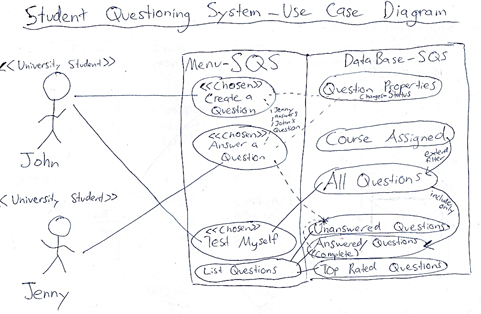 Student Questioning System - Use Case Diagram
<<University Student>>
John
<<University Student>>
Jenny
Menu-SQS
<<Chosen>>
Create a
Question
Jenny
answers
John's
Question
<<Chosen>>
Answer a
Question
<<Chosen>>
Test Myself
List Questions
DataBase-SQS
Question Properties
Changes-Status
Course Assigned
extend
filter
All Questions
include
only
Unanswered Questions
Answered Questions
(complete)
Top Rated Questions